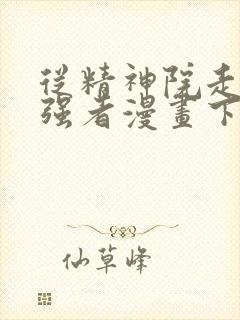 從精神院走
强者漫畫下
仙草峰